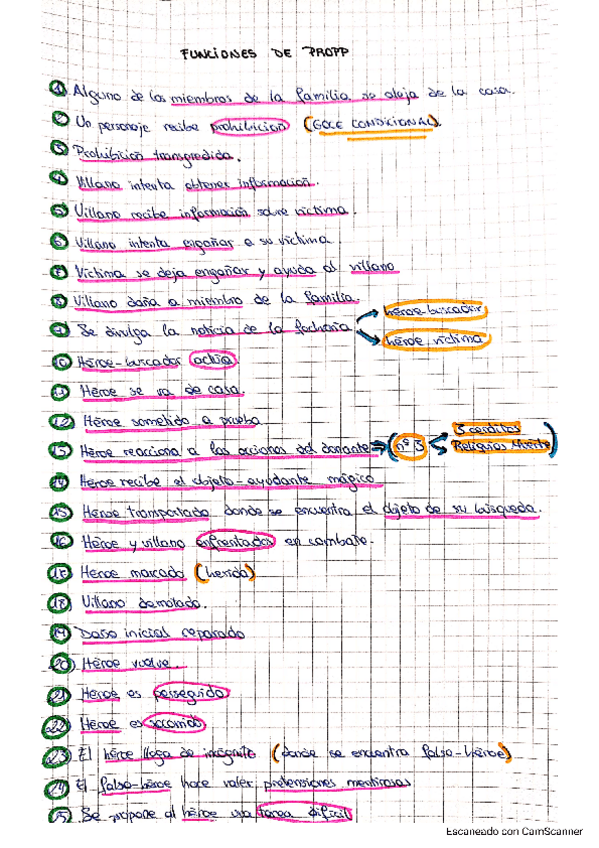 FUNCIONES DE PROPP
1 Alguno de los miembros de la familia se aleja de la casa.
2 Un personaje recibe prohibición (GOCE CONDICIONAL).
3 Prohibición transgredida.
4 Villano intenta obtener información.
5 Villano recibe información sobre víctima.
6 Villano intenta engañar a su víctima.
7 Víctima se deja engañar y ayuda al villano
8 Villano daña a miembro de la familia.
héroe-buscador
9 Se divulga la noticia de la fechoría
héroe víctima
10 Héroe-buscador actúa
11 Héroe se va de casa.
12 Héroe sometido a prueba
3 cerditos
13 Héroe reacciona a las acciones del donante (nº 3
Religioso
14 Héroe recibe el objeto-ayudante mágico
15 Héroe transportado donde se encuentra el objeto de su búsqueda.
16 Héroe y villano enfrentados en combate.
17 Héroe marcado (herida)
18 Villano derrotado.
19 Daño inicial reparado
20 Héroe vuelve.
21 Héroe es perseguido
22 Héroe es socorrido
23 El héroe llega de incógnito (donde se encuentra falso-héroe)
24 El falso-héroe hace valer pretensiones mentirosas
25 Se propone al héroe una tarea difícil
Escaneado con CamScanner